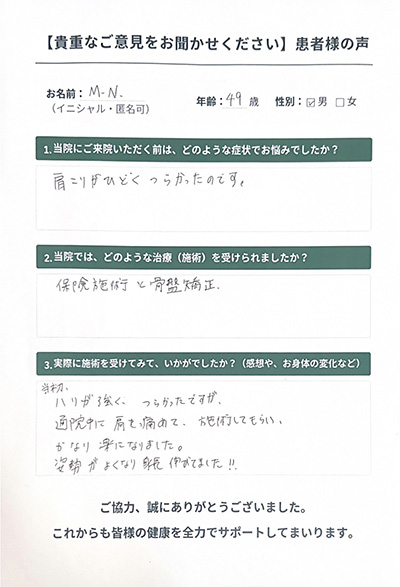 【貴重なご意見をお聞かせください】患者様の声
お名前： M.N.
（イニシャル・匿名可）
年齢：49 歳 性別：☑男 □女
1.当院にご来院いただく前は、どのような症状でお悩みでしたか？
肩こりがひどくつらかったのです。
2.当院では、どのような治療（施術）を受けられましたか？
保険施術と骨盤矯正.
3.実際に施術を受けてみて、いかがでしたか？（感想や、お身体の変化など）
当初、
ハリが強く、つらかったですが、
通院中に肩も痛めて、施術してもらい、
かなり楽になりました。
姿勢がよくなり 伸びてました!!
ご協力、誠にありがとうございました。
これからも皆様の健康を全力でサポートしてまいります。